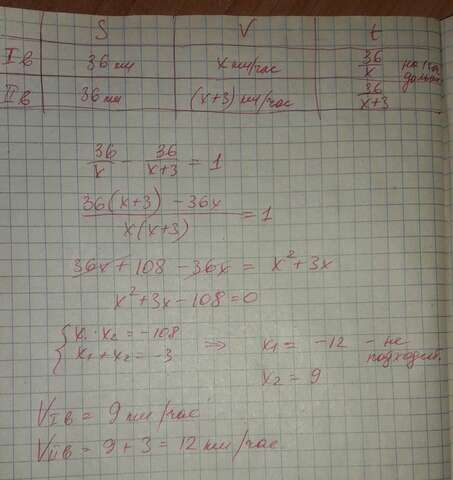 S V t
I в 36 км x км/час 36/x на 1 час дольше
II в 36 км (x+3) км/час 36/x+3
36/x - 36/x+3 = 1
36(x+3) - 36x / x(x+3) = 1
36x + 108 - 36x = x² + 3x
x² + 3x - 108 = 0
{ x₁ · x₂ = -108 ⇒ x₁ = -12 - не подходит.
x₁ + x₂ = -3 x₂ = 9
V I в = 9 км/час
V II в = 9 + 3 = 12 км/час